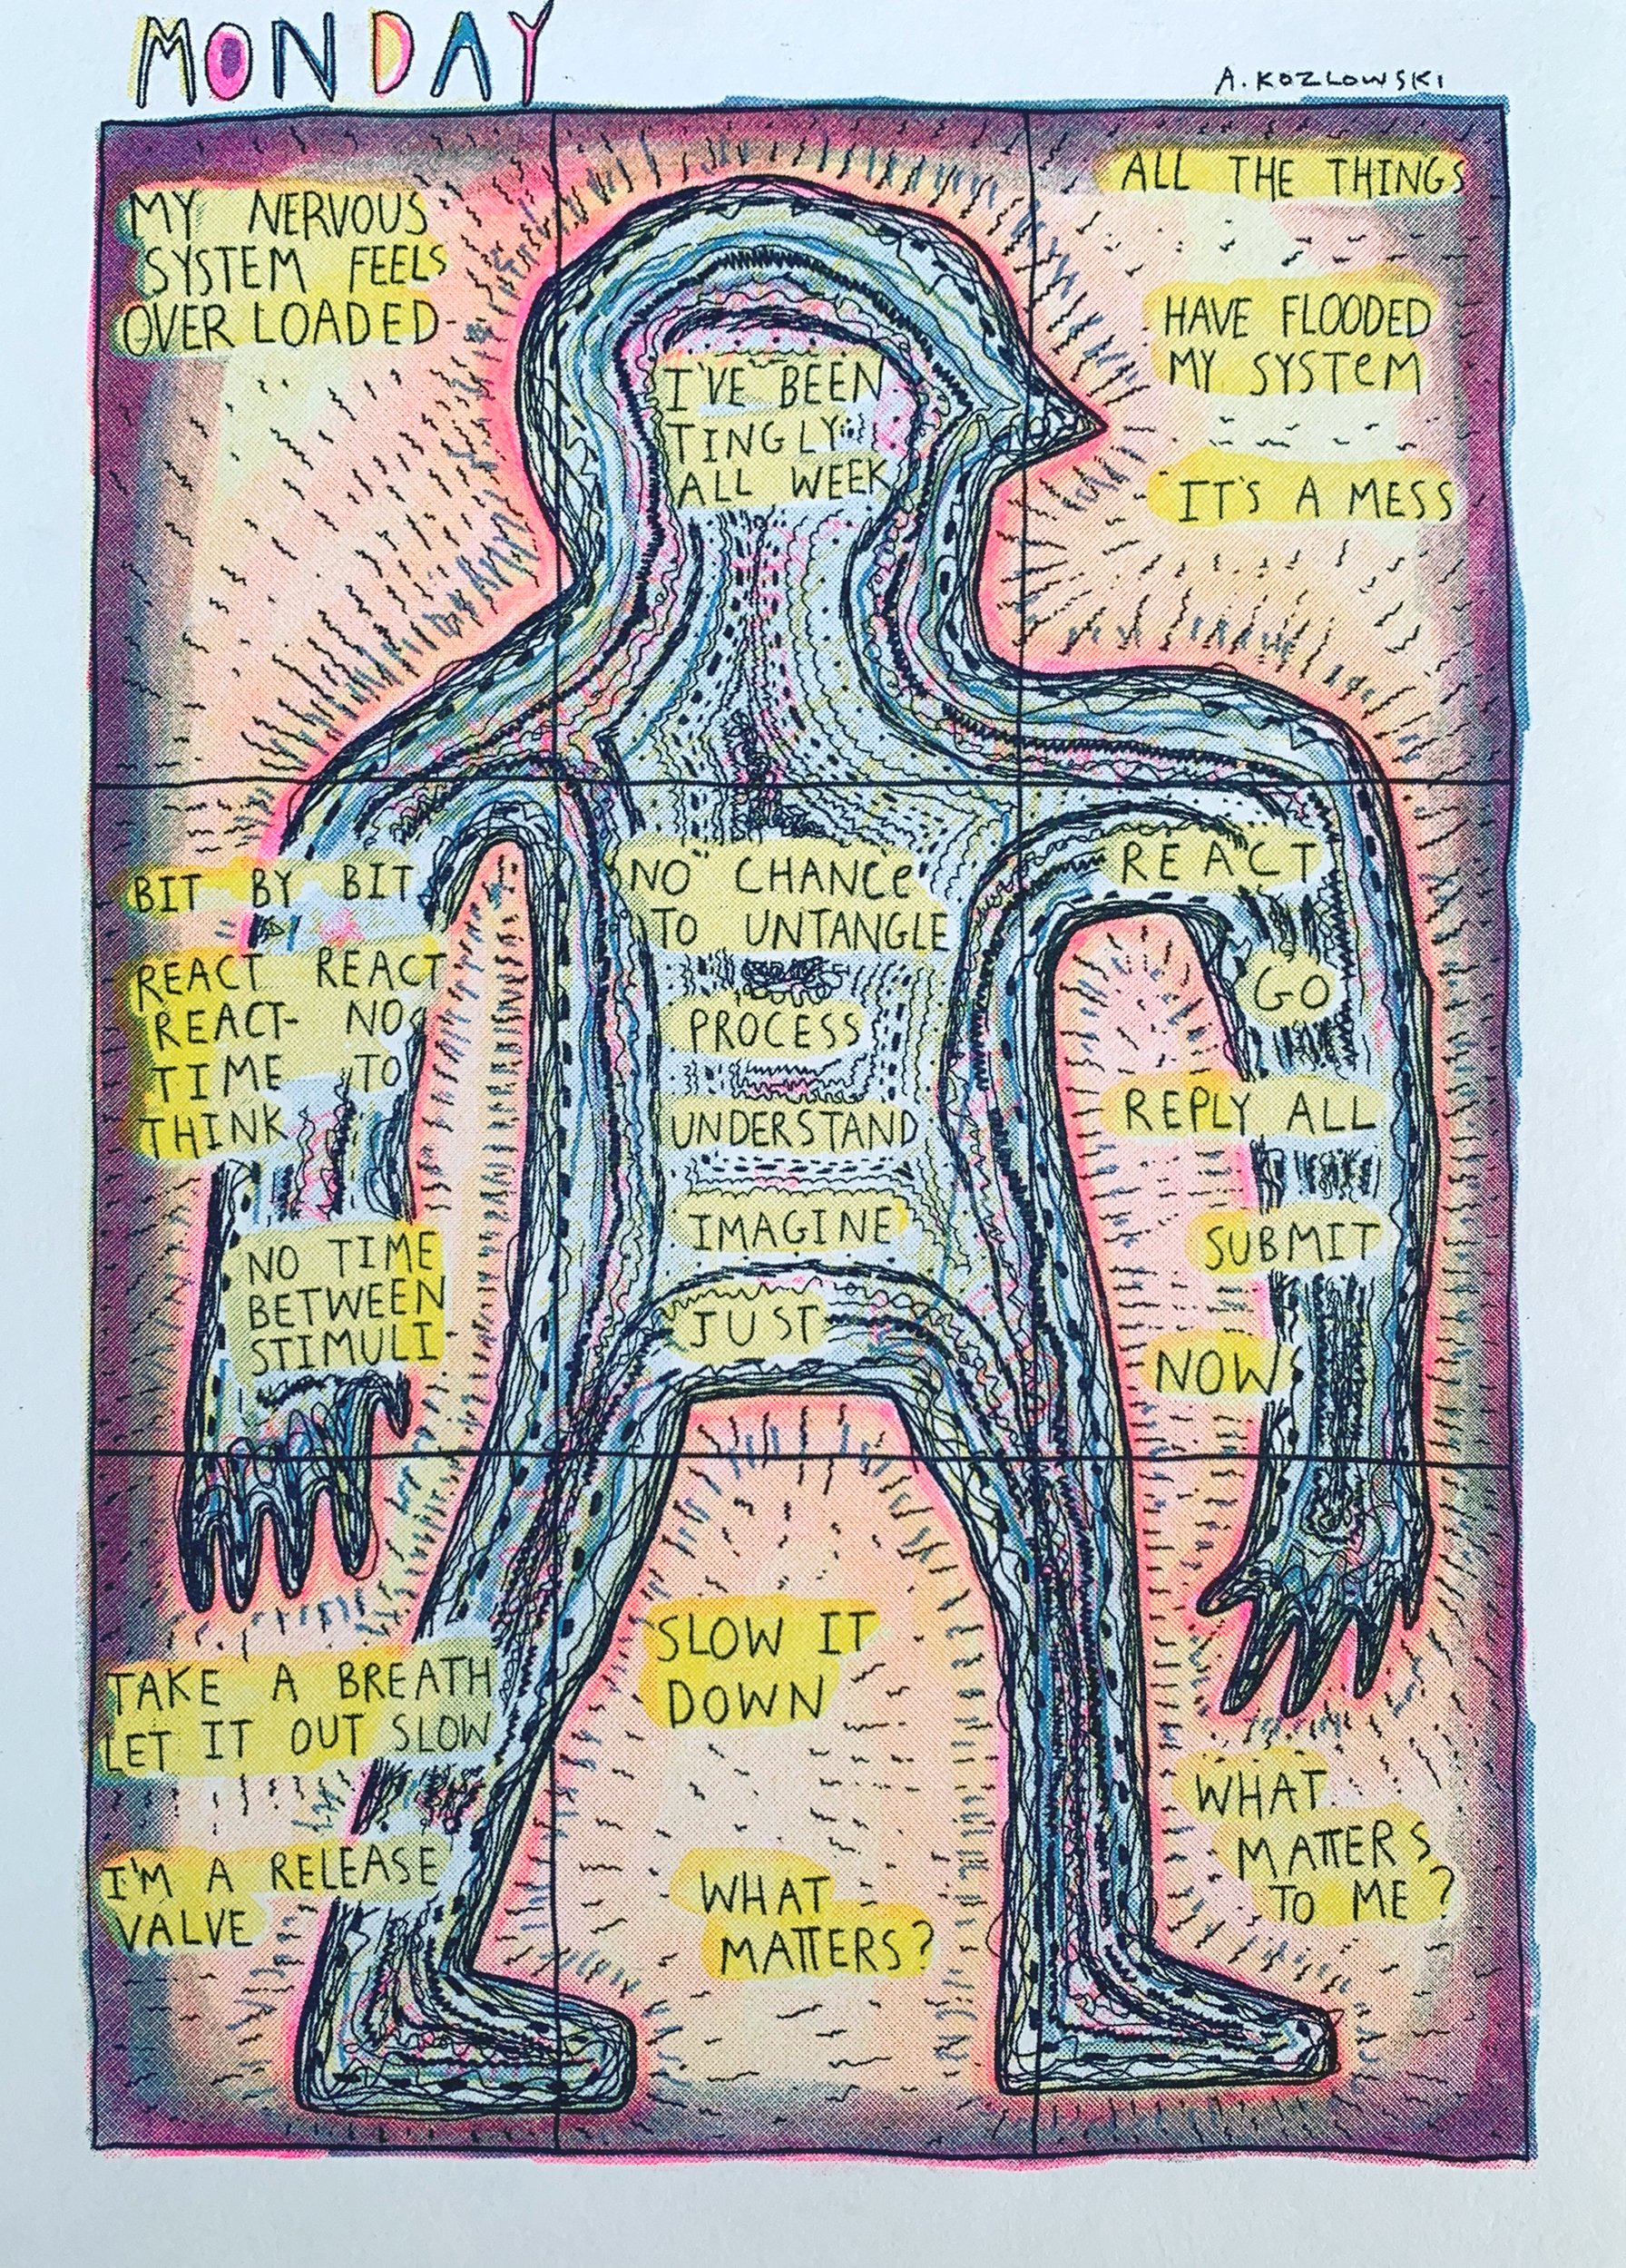 MONDAY
A. KOZLOWSKI
MY NERVOUS
SYSTEM FEELS
OVER LOADED
I'VE BEEN
TINGLY
ALL WEEK
ALL THE THINGS
HAVE FLOODED
MY SYSTEM
IT'S A MESS
BIT BY BIT
REACT REACT
REACT- NO
TIME TO
THINK
NO TIME
BETWEEN
STIMULI
NO CHANCE
TO UNTANGLE
PROCESS
UNDERSTAND
IMAGINE
JUST
REACT
GO
REPLY ALL
SUBMIT
NOW
TAKE A BREATH
LET IT OUT SLOW
I'M A RELEASE
VALVE
SLOW IT
DOWN
WHAT
MATTERS?
WHAT
MATTERS
TO ME?